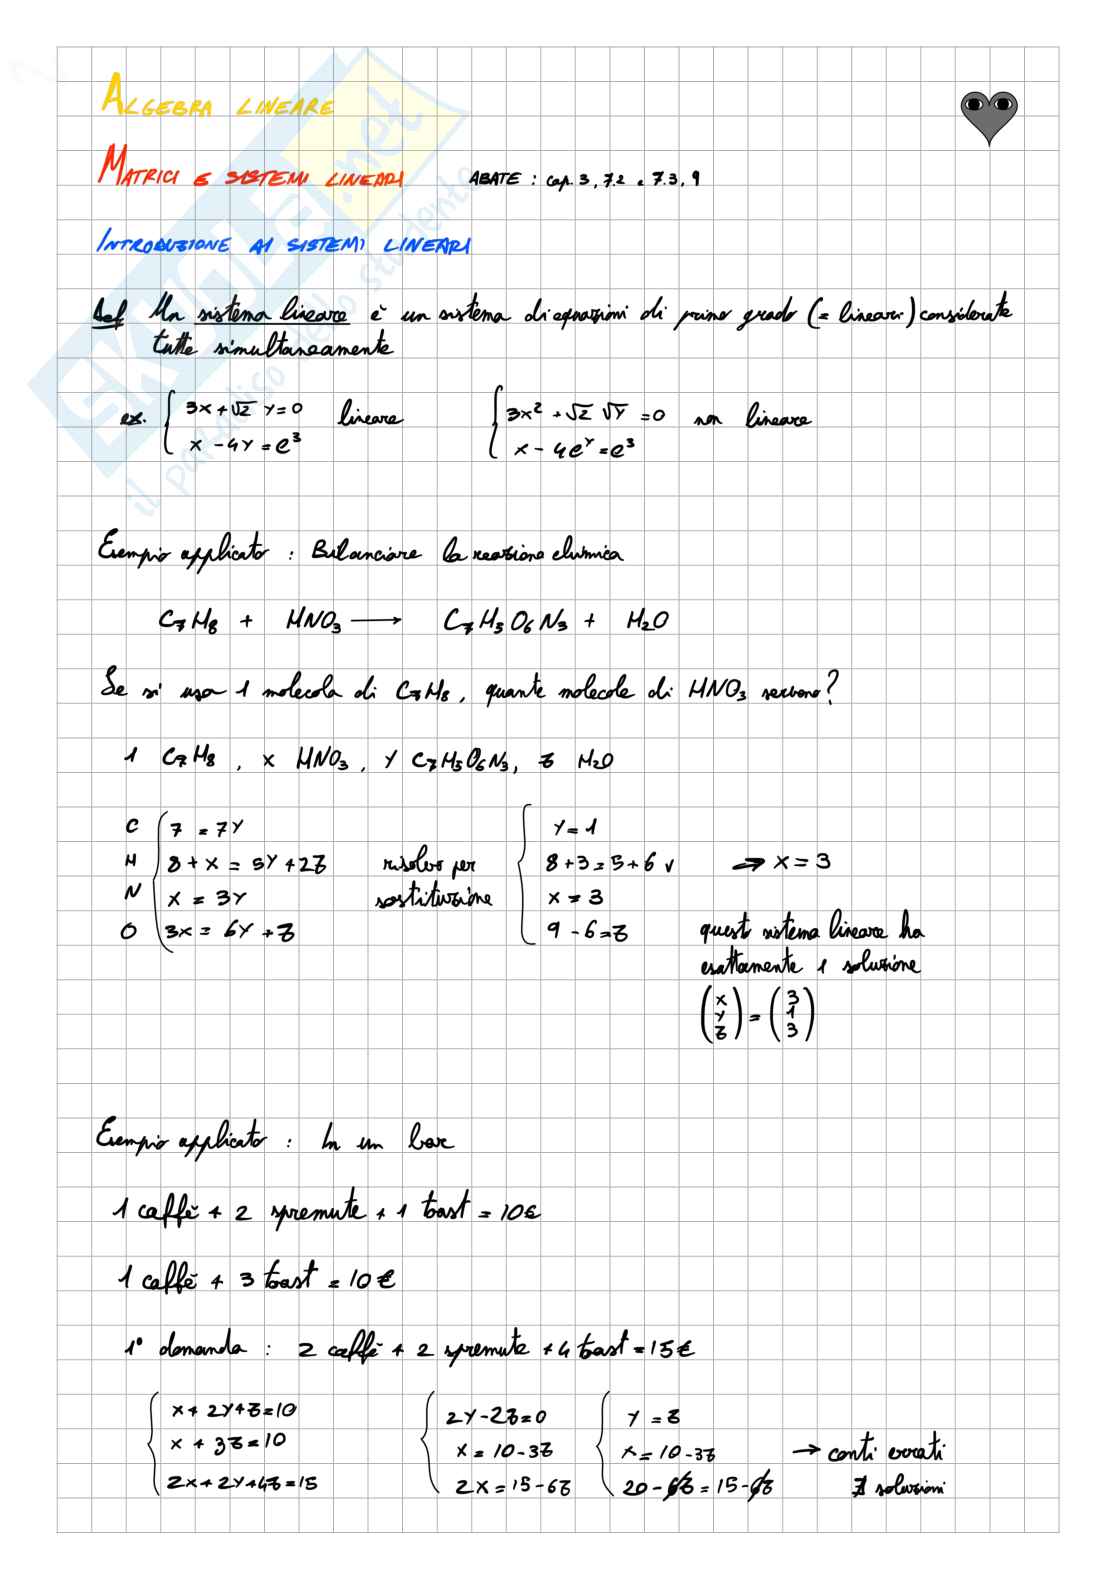 ALGEBRA LINEARE
MATRICI E SISTEMI LINEARI ABATE : cap. 3, 7.2 e 7.3, 9
INTRODUZIONE AI SISTEMI LINEARI
Def Un sistema lineare è un sistema di equazioni di primo grado (= lineari) considerate
tutte simultaneamente
ex. { 3x + √2 y = 0 lineare { 3x² + √2 √y = 0 non lineare
x - 4y = e³ x - 4e^y = e³
Esempio applicato : Bilanciare la reazione chimica
C₇H₈ + HNO₃ ⟶ C₇H₅O₆N₃ + H₂O
Se si usa 1 molecola di C₇H₈, quante molecole di HNO₃ servono?
1 C₇H₈ , x HNO₃ , y C₇H₅O₆N₃, z H₂O
C { 7 = 7y { y = 1
H 8 + x = 5y + 2z risolvo per 8 + 3 = 5 + 6 ✓ ⇒ x = 3
N x = 3y sostituzione x = 3
O 3x = 6y + z 9 - 6 = z questo sistema lineare ha
esattamente 1 soluzione
(x y z) = (3 1 3)
Esempio applicato : In un bar
1 caffè + 2 spremute + 1 toast = 10€
1 caffè + 3 toast = 10 €
1° domanda : 2 caffè + 2 spremute + 4 toast = 15€
{ x + 2y + z = 10 { 2y - 2z = 0 { y = z
x + 3z = 10 x = 10 - 3z x = 10 - 3z → conti errati
2x + 2y + 4z = 15 2x = 15 - 6z 20 - 6z = 15 - 6z ∄ soluzioni
SKUOLA.net
il paradiso dello studente